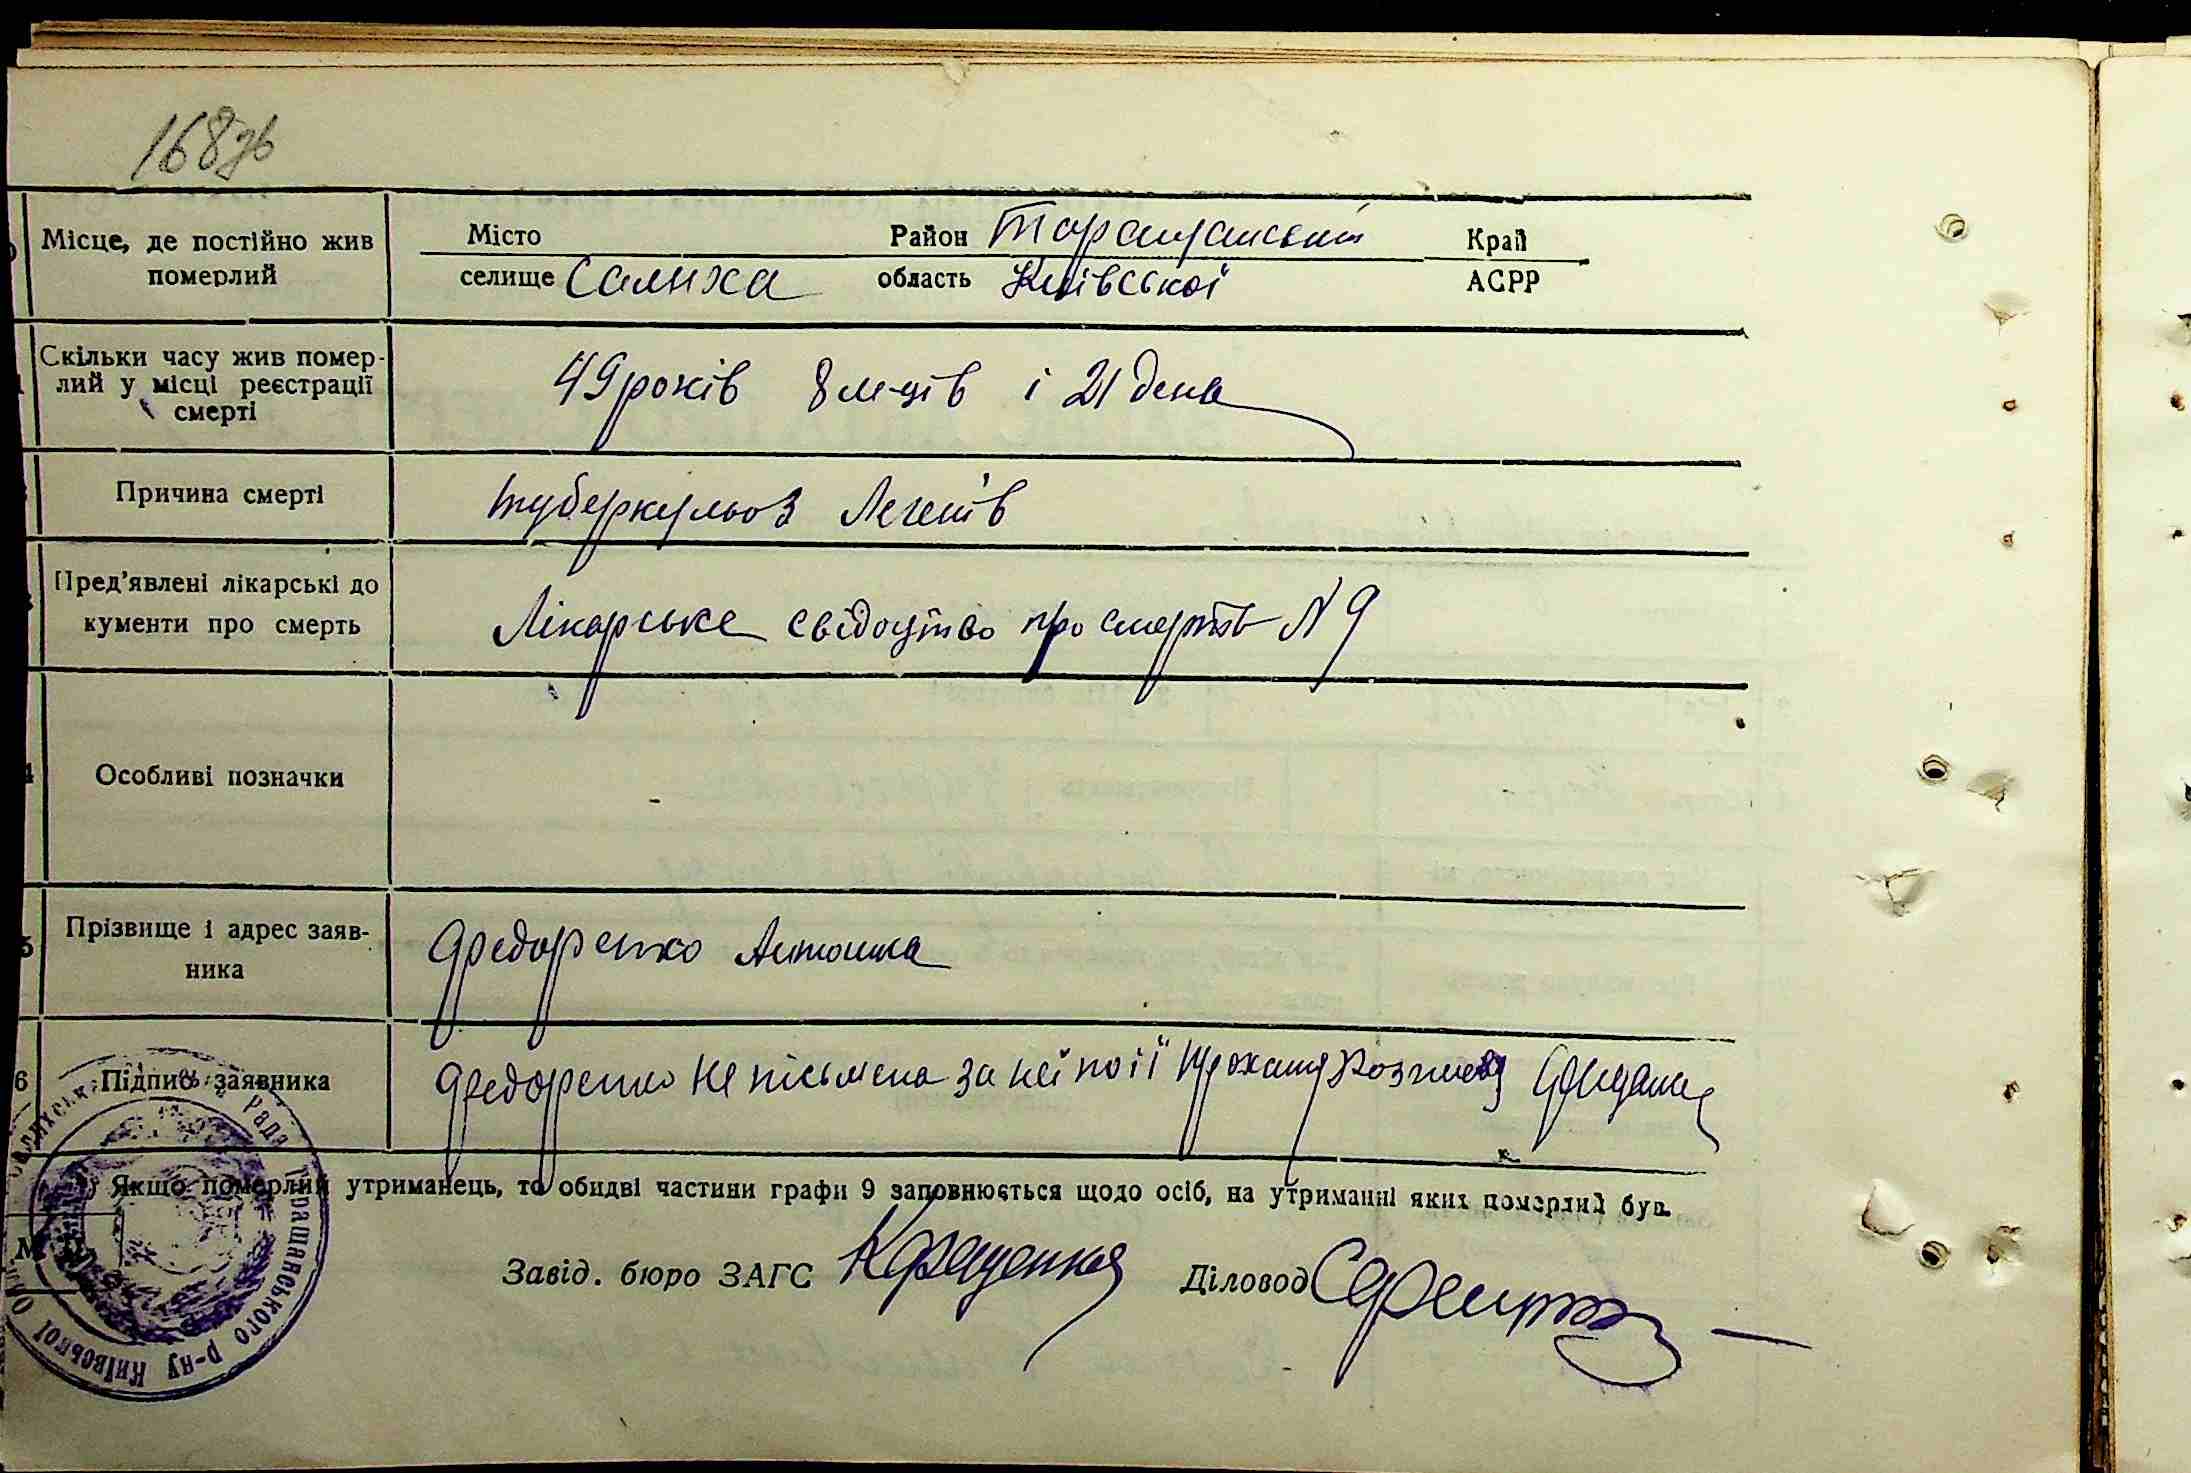 168зв
Місце, де постійно жив
померлий
Місто Район Таращанський Край
селище Салиха область Київської АСРР
Скільки часу жив помер-
лий у місці реєстрації
смерті
49 років 8 м-ців і 21 день
Причина смерті
туберкульоз Легенів
Пред'явлені лікарські до
кументи про смерть
Лікарське свідоцтво про смерть N 9
Особливі позначки
Прізвище і адрес заяв-
ника
Федоренко Антонина
6 Підпис заявника
Федоренко не письмена за неї по її проханя Розписався
Якщо померлий утриманець, то обидві частини графи 9 заповнюється щодо осіб, на утриманні яких померлий був.
М
Завід. бюро ЗАГС Діловод
рада Таращанського р-ну Київської